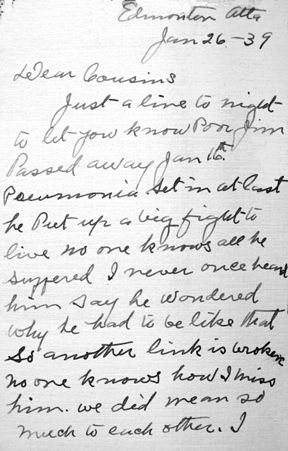 Edmonton Alta
Jan 26-39
Dear Cousins
Just a line to night
to let you know Poor Jim
Passed away Jan 16th
Pneumonia set in at last
he Put up a big fight to
live no one knows all he
suffered I never once heard
him say he wondered
why he had to be like that
So another link is broken
no one knows how I miss
him. we did mean so
much to each other. I